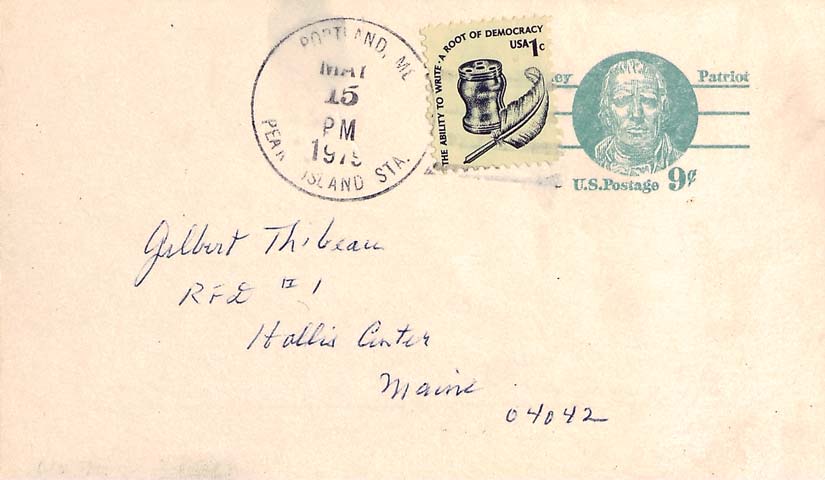 PORTLAND, ME
MAY
15
PM
1979
PEAK ISLAND STA.
THE ABILITY TO WRITE · A ROOT OF DEMOCRACY
USA 1c
ey Patriot
U.S. Postage 9¢
Gilbert Thibeau
RFD # 1
Hollis Center
Maine
04042